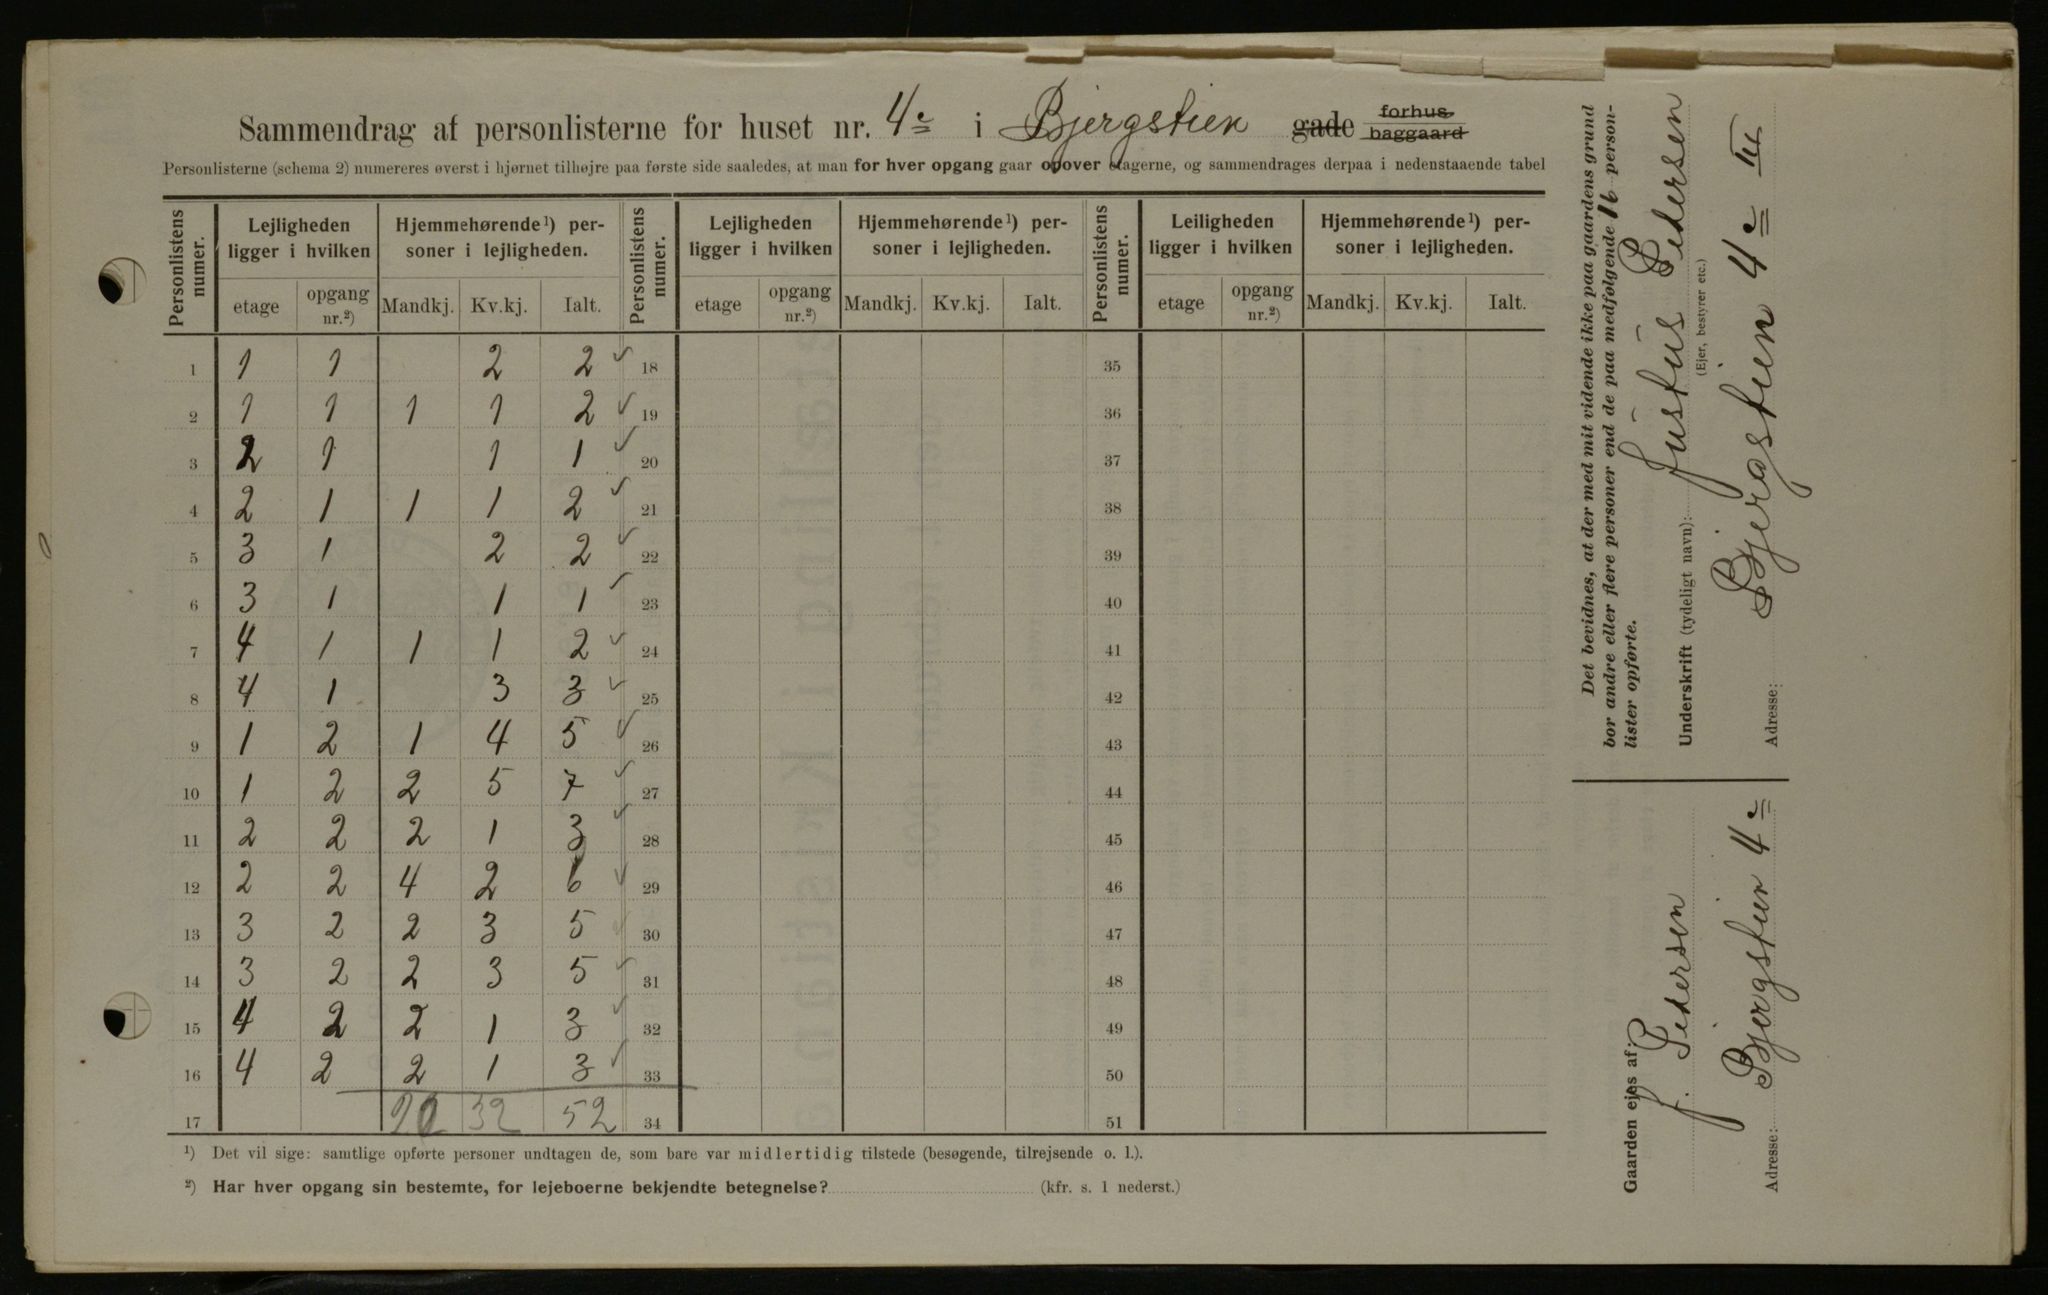 Sammendrag af personlisterne for huset nr. 4c i Bjergstien gade forhus baggaard
Personlisterne (schema 2) numereres øverst i hjørnet tilhøjre paa første side saaledes, at man for hver opgang gaar opover etagerne, og sammendrages derpaa i nedenstaaende tabel
Personlistens numer. Lejligheden ligger i hvilken Hjemmehørende¹) personer i lejligheden. Personlistens numer. Lejligheden ligger i hvilken Hjemmehørende¹) personer i lejligheden. Personlistens numer. Leiligheden ligger i hvilken Hjemmehørende¹) personer i lejligheden.
etage opgang nr.²) Mandkj. Kv.kj. Ialt. etage opgang nr.²) Mandkj. Kv.kj. Ialt. etage opgang nr.²) Mandkj. Kv.kj. Ialt.
1 1 1 2 2 ✓ 18 35
2 1 1 1 1 2 ✓ 19 36
3 2 1 1 1 ✓ 20 37
4 2 1 1 1 2 ✓ 21 38
5 3 1 2 2 ✓ 22 39
6 3 1 1 1 ✓ 23 40
7 4 1 1 1 2 ✓ 24 41
8 4 1 3 3 ✓ 25 42
9 1 2 1 4 5 ✓ 26 43
10 1 2 2 5 7 ✓ 27 44
11 2 2 2 1 3 ✓ 28 45
12 2 2 4 2 6 ✓ 29 46
13 3 2 2 3 5 ✓ 30 47
14 3 2 2 3 5 ✓ 31 48
15 4 2 2 1 3 ✓ 32 49
16 4 2 2 1 3 ✓ 33 50
17 20 32 52 34 51
¹) Det vil sige: samtlige opførte personer undtagen de, som bare var midlertidig tilstede (besøgende, tilrejsende o. l.).
²) Har hver opgang sin bestemte, for lejeboerne bekjendte betegnelse? (kfr. s. 1 nederst.)
Det bevidnes, at der med mit vidende ikke paa gaardens grund
bor andre eller flere personer end de paa medfølgende 16 person-
lister opførte.
Underskrift (tydeligt navn): Justus Pedersen
(Ejer, bestyrer etc.)
Adresse: Bjergstien 4c III
Gaarden ejes af: J. Pedersen
Adresse: Bjergstien 4c